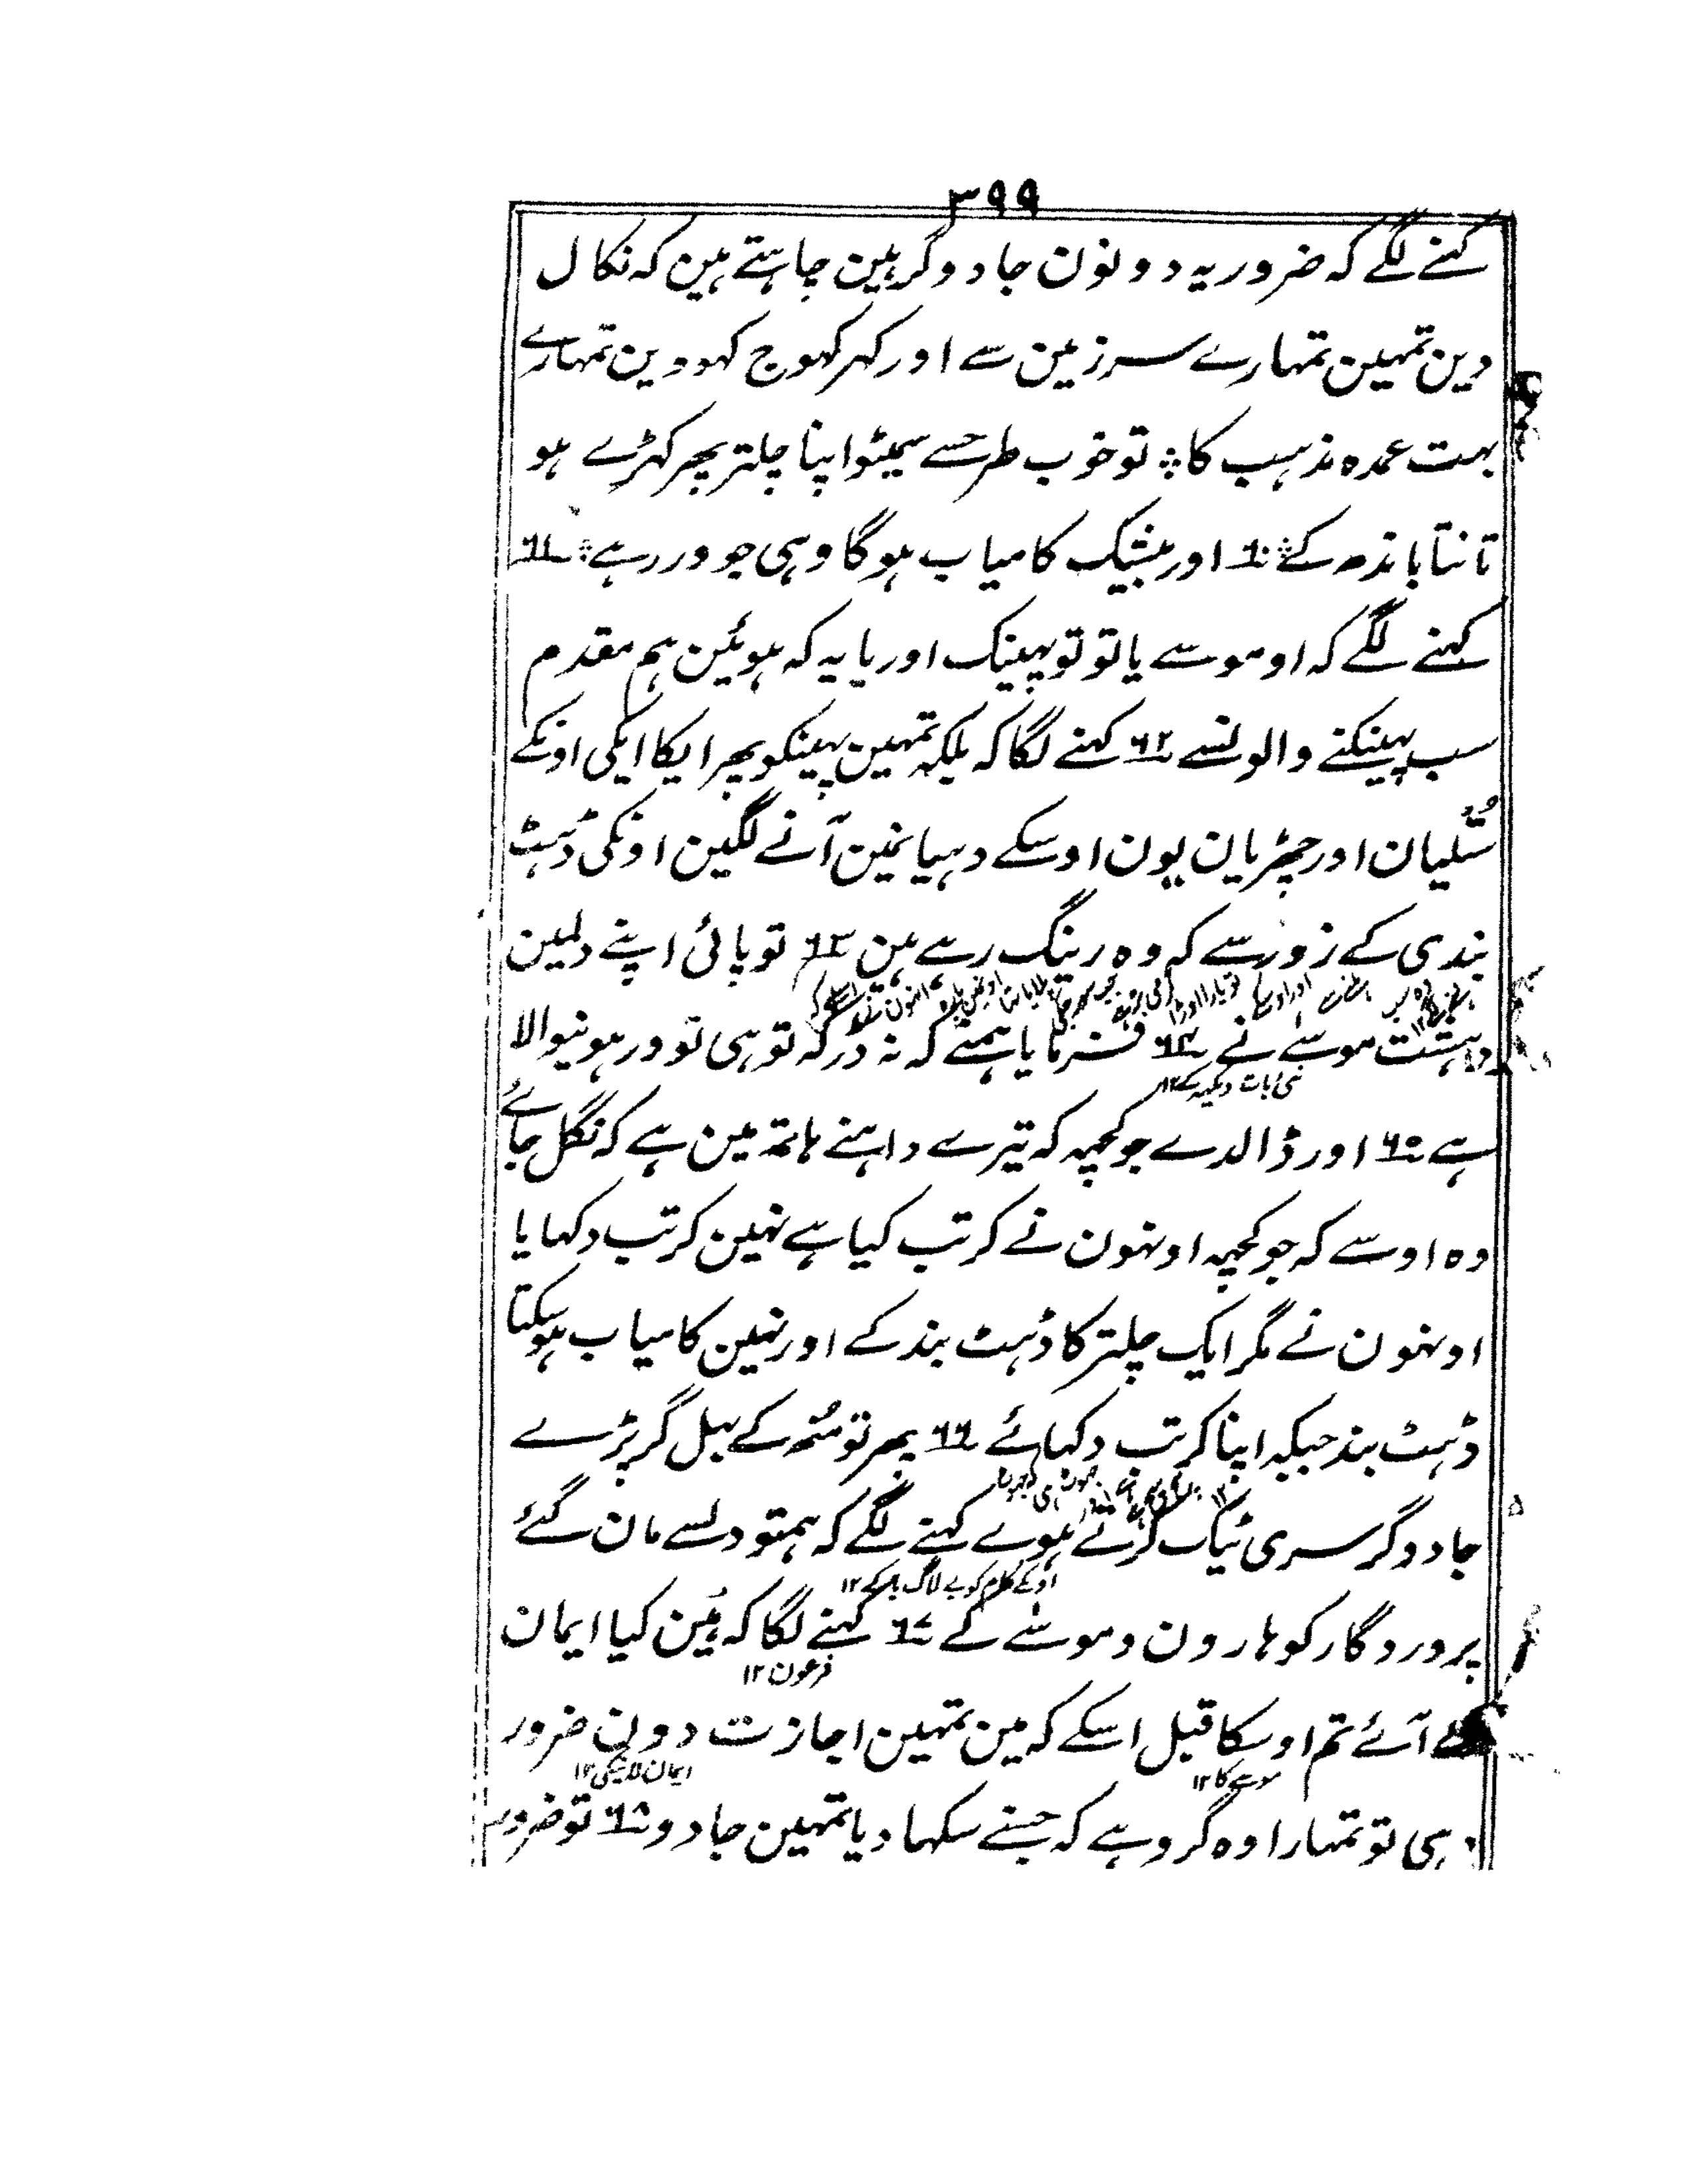 ۳۹۹
کہنے لگے کہ ضرور یہ دونون جادوگر ہین چاہتے ہین کہ نکال
دین تمہین تمہارے سرزمین سے اور کہرکہوج کہودین تمہارے
بہت عمدہ مذہب کا ؞ تو خوب طرحسے سمیٹو اپنا چلتر پھر کھڑے ہو
تانتا باندھ کے ؞ ۶۰ اور بیشک کامیاب ہوگا وہی جو ور رہے ؞ ۶۱
کہنے لگے کہ او موسے یا تو تو پہینک اور یا یہ کہ ہوئین ہم مقدم
سب پہینکنے والونسے ۶۲ کہنے لگا کہ بلکہ تمہین پہینکو پھر ایکا ایکی اونکے
سُتلیان اور چھڑیان یون اوسکے دہیانمین آنے لگین اونکی ڈہٹ
بندی کے زور سے کہ وہ رینگ رہے ہین ۶۳ تو پائی اپنے دلمین
دہشت موسےٰ نے ۶۴ فرمایا ہمنے کہ نہ ڈر کہ تو ہی تو ور ہونیوالا
نئی بات دیکھ کے ۱۲
ہے ۶۵ اور ڈالدے جو کچھہ کہ تیرے داہنے ہاتھ مین ہے کہ نگل جائے
وہ اوسے کہ جو کچھہ اونہون نے کرتب کیا ہے نہین کرتب دکہایا
اونہون نے مگر ایک چلتر کا ڈہٹ بند کے اور نہین کامیاب ہوسکتا
ڈہٹ بند جبکہ اپنا کرتب دکہائے ۶۶ پھر تو مُنھ کے بہل گر پڑے
جادوگر سری ٹیک کرتے ہوے کہنے لگے کہ ہمتو دلسے مان گئے
اونکے کلام کو بے لاگ پاکے ۱۲
پروردگار کو ہارون و موسےٰ کے ۶۷ کہنے لگا کہ ہَین کیا ایمان
فرعون ۱۲
لے آئے تم اوسکا قبل اسکے کہ مین تمہین اجازت دون ضرور
موسے کا ۱۲ ایمان لانیکی ۱۲
وہی تو تمہارا وہ گرو ہے کہ جسنے سکہا دیا تمہین جادو ۶۸ تو ضرور